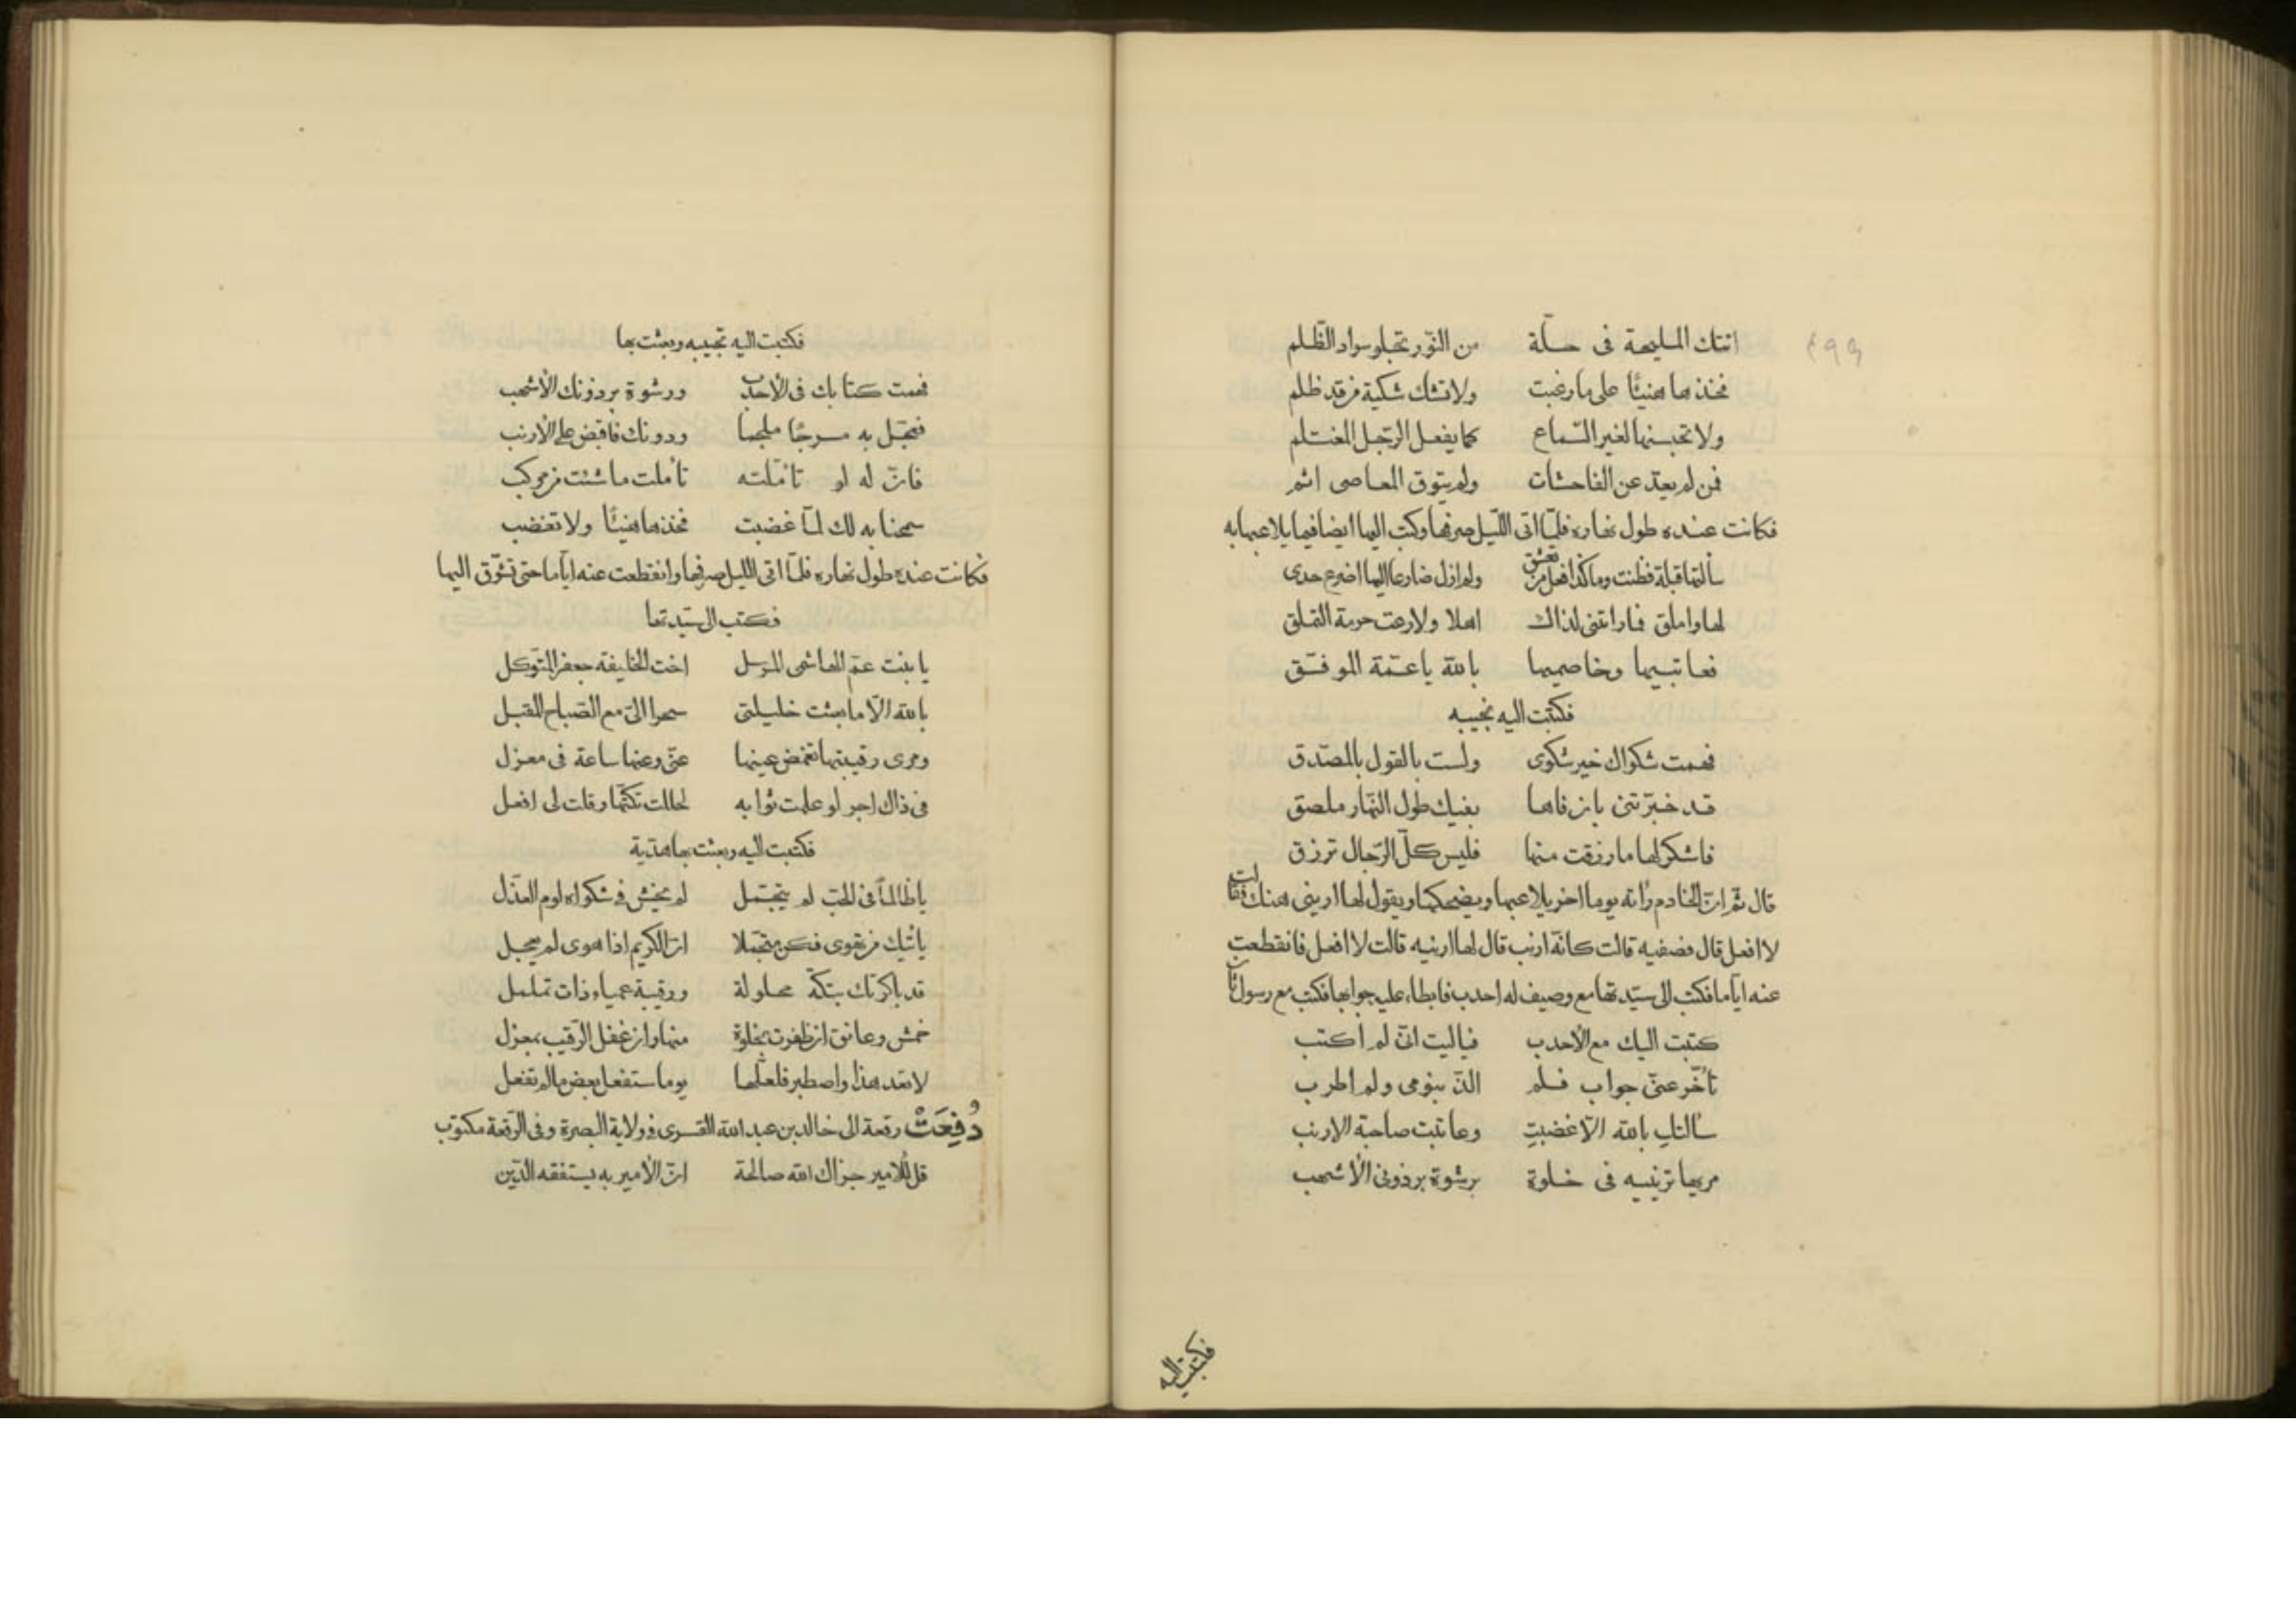 ٤٩٩
اتتك المليحة فى حلّة من النّور تجلو سواد الظّلم
فخذها هنيئًا على ما رغبت ولا تشك شكية من قد ظلم
ولا تحبسنها لغير السّماع كما يفعل الرّجل المغتلم
فمن لم يعدّ عن الفاحشات ولم يتوق المعاصى اثم
فكانت عنده طول نهاره فلمّا اتى اللّيل صرفها وكتب اليها ايضا فيما يلاعبها به
سألتها قبلة فظنت وما كذا فعل من تعشق ولم ازل ضارعا اليها اضرع خدى
لها واملق فما راتنى لذاك اهلا ولا رعت حرمة التملق
فعاتبيها وخاصميها بالله يا عمّة الموفّق
فكتبت اليه تجيبه
فهمت شكواك خير شكوى ولست بالقول بالمصدّق
قد خبّرتنى بان فاها بفيك طول النّهار ملصق
فاشكر لها ما رزقت منها فليس كلّ الرّجال ترزق
قال ثمّ انّ الخادم رأته يوما اخر يلاعبها ويضحكها ويقول لها ارينى هنك فقالت
لا افعل قال فصفيه قالت كانّه ارنب قال لها ارنيه قالت لا افعل فانقطعت
عنه ايّاما فكتب الى سيّدتها مع وصيف له احدب فابطاء عليه جوابها فكتب مع رسول ثان
كتبت اليك مع الأحدب فياليت انّى لم اكتب
تأخّر عنّى جواب فلم الذّ بنومى ولم اطرب
سألتك بالله الّا غضبت وعاتبت صاحبة الارنب
مريها ترينيه فى خلوة برشوة برذونى الأشهب
فكتبت اليه
فكتبت اليه تجيبه وبعثت بها
فهمت كتابك فى الأحدب ورشوة برذونك الأشهب
فعجّل به مسرجًا ملجما ودونك فاقبض على الأرنب
فانّ له لو تأمّلته تأملت ما شئت من موكب
سمحنا به لك لمّا غضبت فخذها هنيئًا ولا تغضب
فكانت عنده طول نهاره فلمّا اتى الليل صرفها وانقطعت عنه ايّاما حتى تشوّق اليها
فكتب الى سيّدتها
يا بنت عمّ الهاشمى المرسل اخت الخليفة جعفر المتوكل
بالله الّا ما بعثت خليلتى سحرا الىّ مع الصّباح المقبل
ومرى رقيبتها تغمض عينها عنّى وعنها ساعة فى معزل
فى ذاك اجر لو علمت ثوابه لحللت تكّتها وقلت لى افعل
فكتبت اليه وبعثت بها هديّة
يا ظالمًا فى الحبّ لم يتجمّل لم يخش فى شكواه لوم العذّل
يأتيك من تهوى فكن متجمّلا انّ الكريم اذا هوى لم يعجل
قد باكرتك بتكّة محلولة ورقيبة عمياء ذات تململ
خمش وعانق ان ظفرت بخلوة منها وان غفل الرّقيب بمعزل
لا تعد هذا واصطبر فلعلّها يوما ستفعل بعض ما لم تفعل
دُفِعَتْ رقعة الى خالد بن عبد الله القسرى فى ولاية البصرة وفى الرّقعة مكتوب
قل للأمير جزاك الله صالحة انّ الأمير به يستفقه الدّين